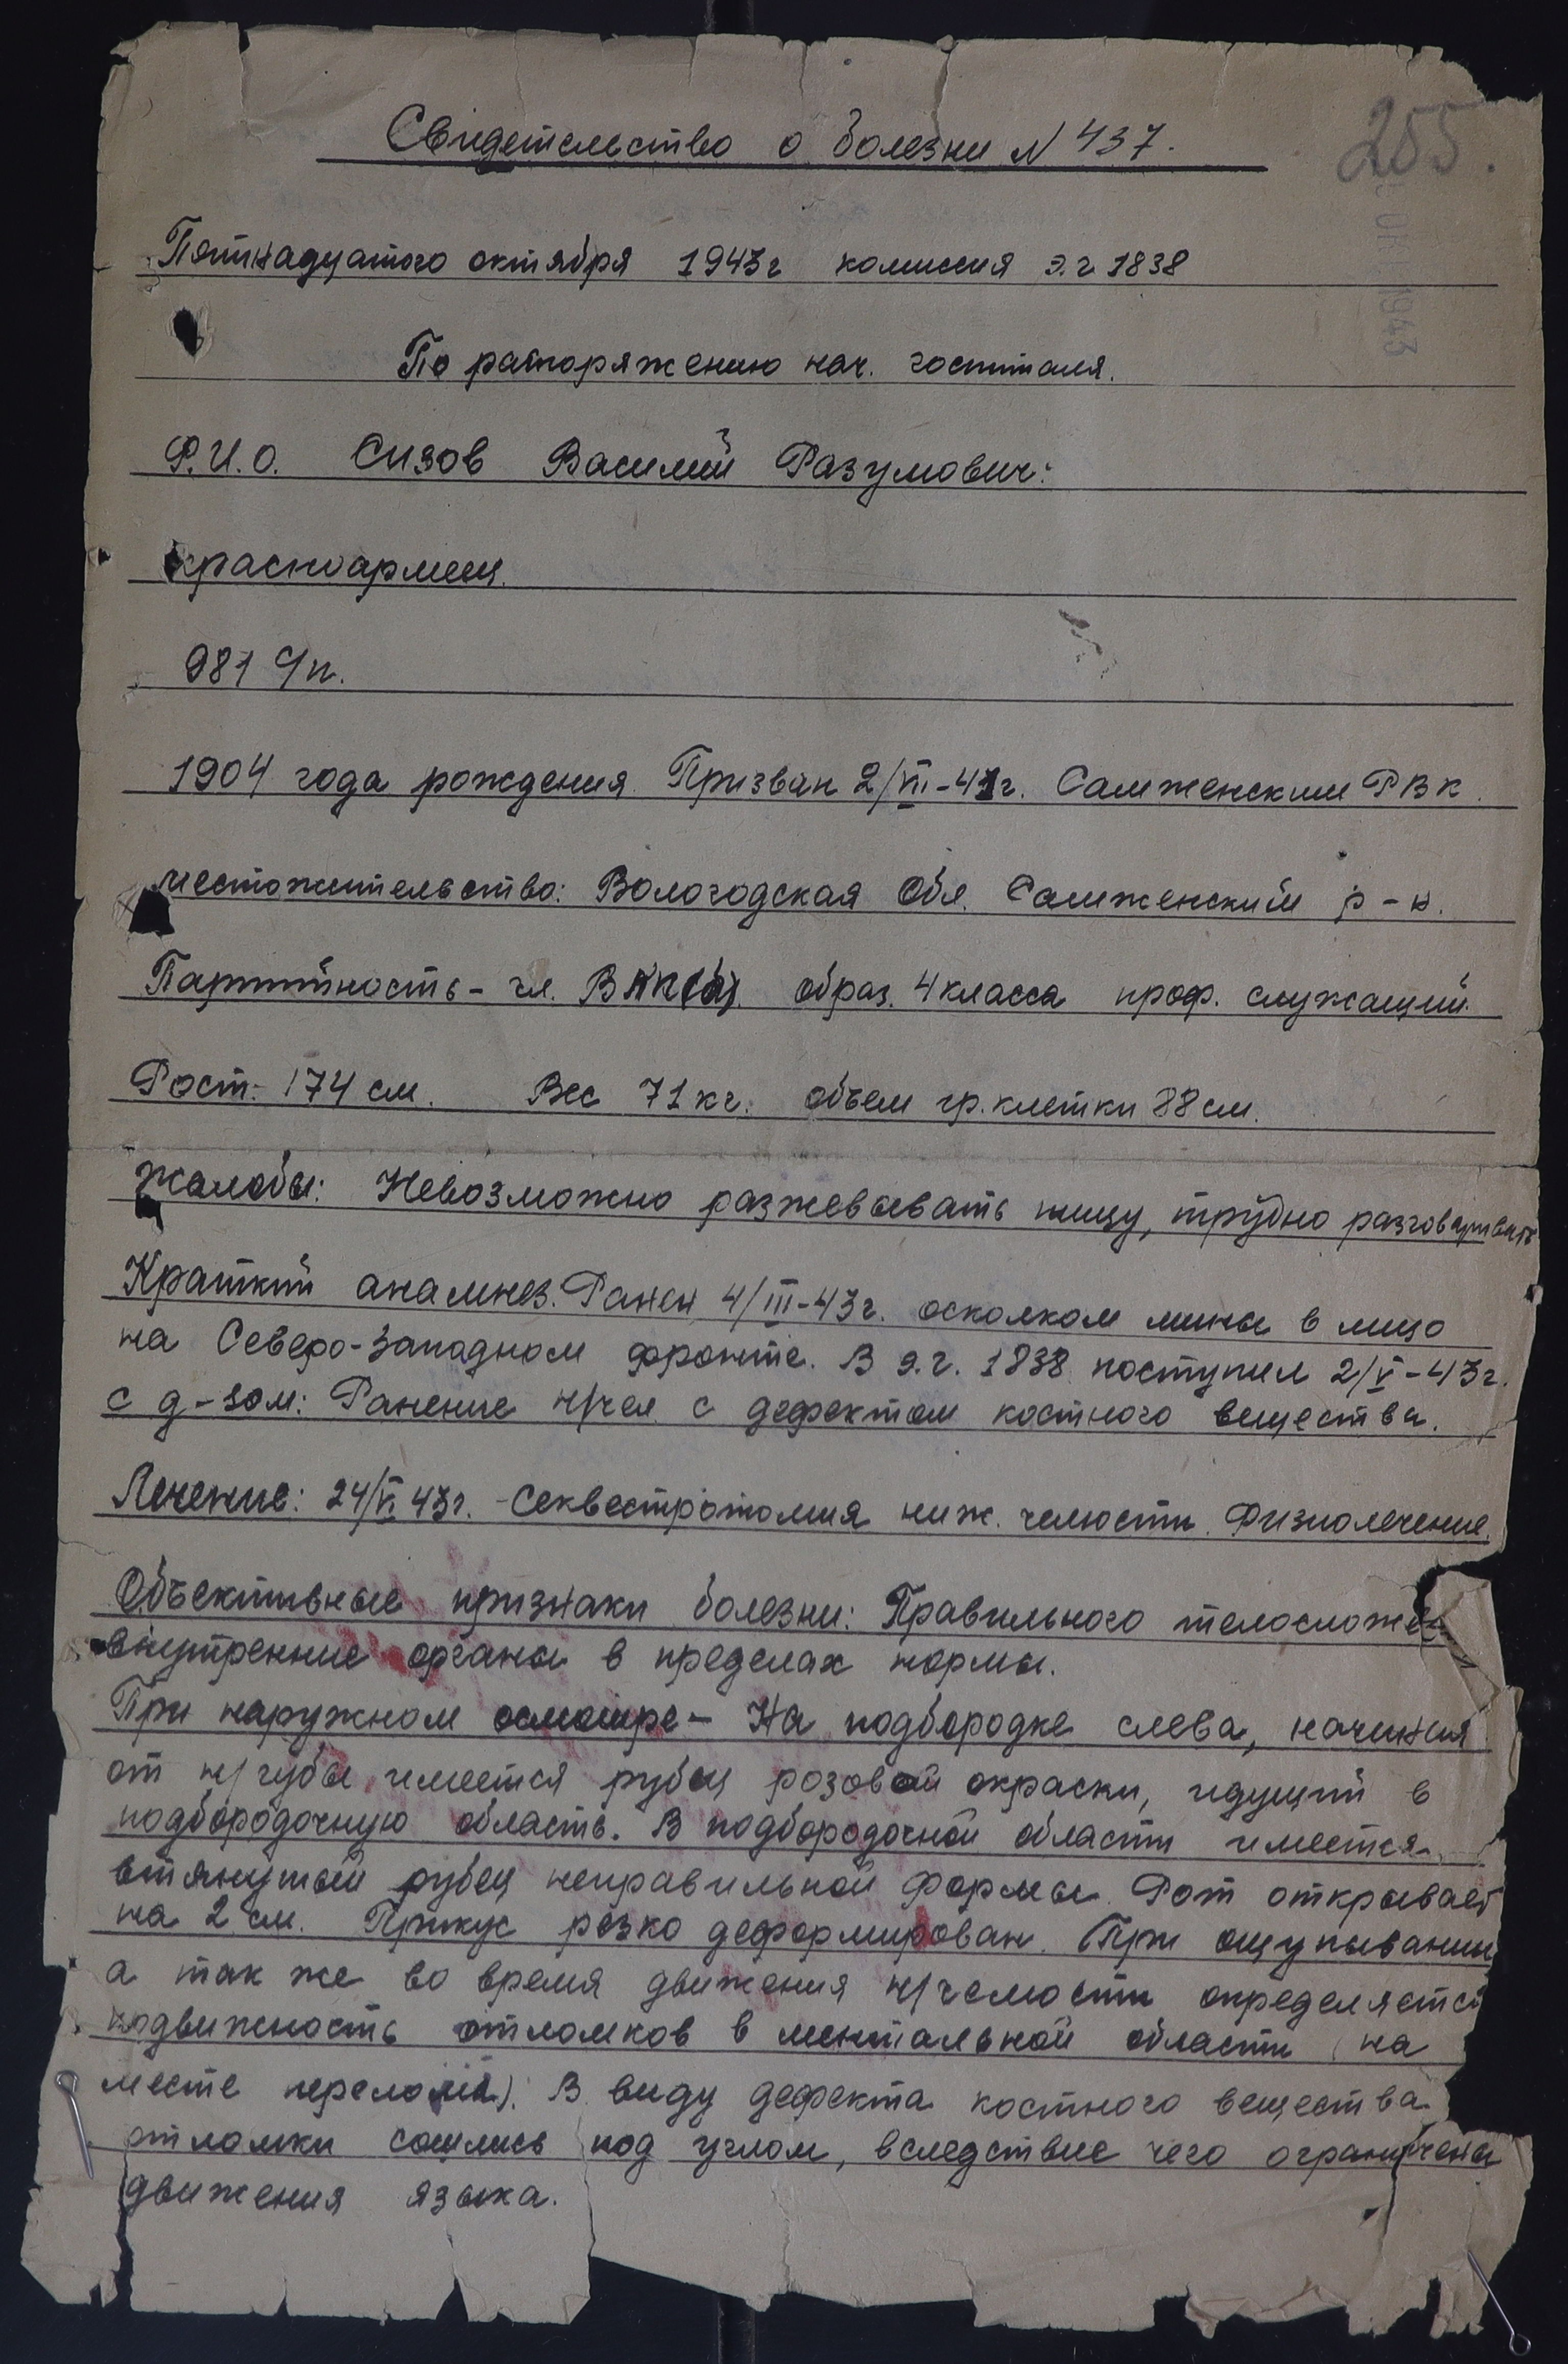 Свидетельство о болезни N 437.
255.
ОКТ 1943
Пятнадцатого октября 1943г комиссия э.г 1838
По распоряжению нач. госпиталя.
Ф.И.О. Сизов Василий Разумович.
красноармеец.
981 С/п.
1904 года рождения. Призван 2/VII-41г. Самженским РВК.
местожительство: Вологодская Обл. Самженский р-н.
Партийность - чл. ВКП(б). образ. 4 класса проф. служащий.
Рост: 174 см. Вес 71 кг. объем гр. клетки 88 см.
Жалобы: Невозможно разжевывать пищу, трудно разговаривать
Краткий анамнез. Ранен 4/III-43г. осколком мины в лицо
на Северо-Западном фронте. В э.г. 1838 поступил 2/V-43г.
с д-зом: Ранение н/чел с дефектом костного вещества.
Лечение: 24/VI 43г. - Секвестротомия ниж. челюсти. Физиолечение.
Объективные признаки болезни: Правильного телосложен
внутренние органы в пределах нормы.
При наружном осмотре - На подбородке слева, начиная
от н/губы имеется рубец розовой окраски, идущий в
подбородочную область. В подбородочной области имеется
втянутый рубец неправильной формы. Рот открывает
на 2 см. Прикус резко деформирован. При ощупывании
а так же во время движения н/челюсти определяется
подвижность отломков в ментальной области (на
месте перелома). В виду дефекта костного вещества
отломки сошлись под углом, вследствие чего ограничены
движения языка.